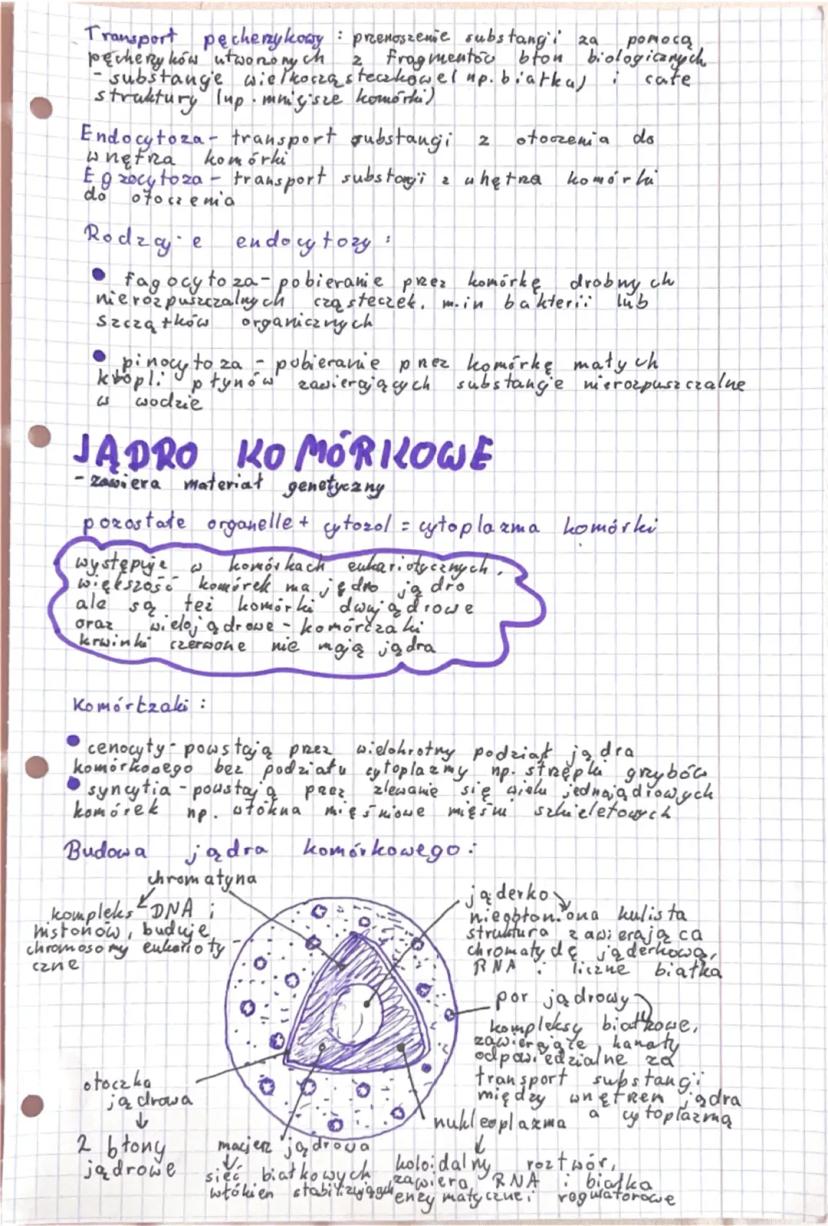 Transport pęcherzykowy: przenoszenie substancji za pomocą
pęcherzyków utworzonych z fragmentów błon biologicznych
- substancje wielkocząsteczkowe (np. białka) i całe
struktury (np. mniejsze komórki)
Endocytoza - transport substancji z otoczenia do
wnętrza komórki
Egzocytoza - transport substancji z wnętrza komórki
do otoczenia
Rodzaje endocytozy:
• fagocytoza - pobieranie przez komórkę drobnych
nierozpuszczalnych cząsteczek, m.in bakterii lub
szczątków organicznych
• pinocytoza - pobieranie przez komórkę małych
kropli płynów zawierających substancje nierozpuszczalne
w wodzie
JĄDRO KOMÓRKOWE
- zawiera materiał genetyczny
pozostałe organelle + cytozol = cytoplazma komórki
występuje w komórkach eukariotycznych.
większość komórek ma jedno jądro
ale są też komórki dwujądrowe
oraz wielojądrowe - komórczaki
krwinki czerwone nie mają jądra
Komórczaki:
• cenocyty - powstają przez wielokrotny podział jądra
komórkowego bez podziału cytoplazmy np. strzępki grzybów
• syncytia - powstają przez zlewanie się wielu jednojądrowych
komórek np. włókna mięśniowe mięśni szkieletowych
Budowa jądra komórkowego:
chromatyna
kompleks DNA i
histonów, buduje
chromosomy eukarioty-
czne
jąderko
nieobłoniona kulista
struktura zawierająca
chromatydę jąderkową,
RNA i liczne białka
por jądrowy
kompleksy białkowe,
zawierające kanały
odpowiedzialne za
transport substancji
między wnętrzem jądra
a cytoplazmą
otoczka
jądrowa
2 błony
jądrowe
macierz jądrowa
sieć białkowych
włókien stabilizujących
nukleoplazma
koloidalny roztwór,
zawiera RNA i białka
enzymatyczne i regulatorowe